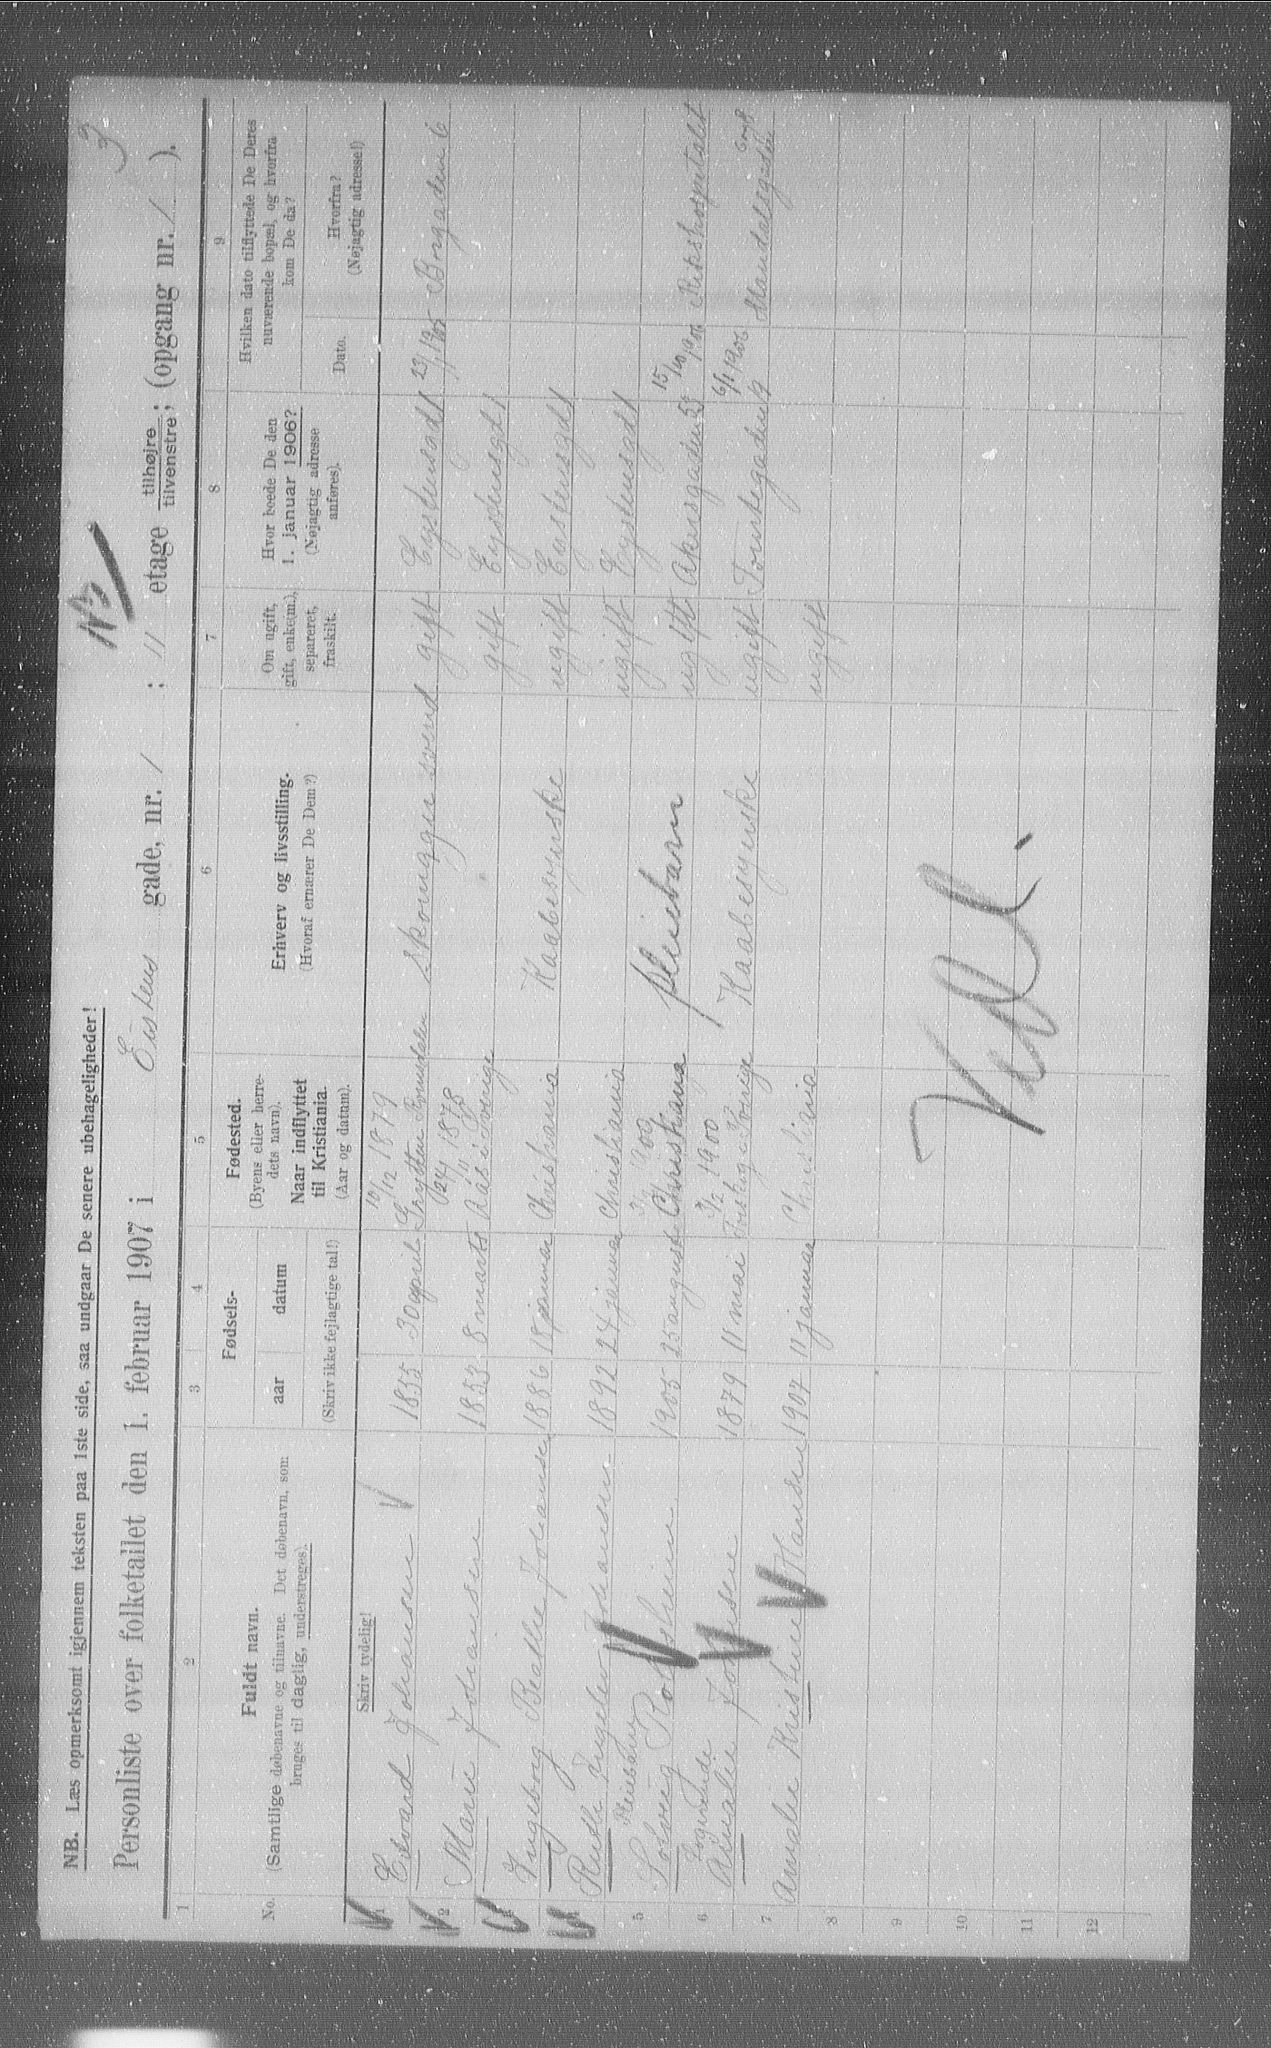 3
NB. Læs opmerksomt igjennem teksten paa 1ste side, saa undgaar De senere ubehageligheder!
Personliste over folketallet den 1. februar 1907 i Eistens gade, nr. 1 ; 11 etage tilhøjre tilvenstre; (opgang nr. 1 ).
1 2 3 4 5 6 7 8 9
No.
Fuldt navn.
(Samtlige døbenavne og tilnavne. Det døbenavn, som
bruges til daglig, understreges).
Fødsels-
aar datum
(Skriv ikke fejlagtige tal!)
Fødested.
(Byens eller herre-
dets navn).
Naar indflyttet
til Kristiania.
(Aar og datum).
Erhverv og livsstilling.
(Hvoraf ernærer De Dem?)
Om ugift,
gift, enke(m.),
separeret,
fraskilt.
Hvor boede De den
1. januar 1906?
(Nøjagtig adresse
anføres).
Hvilken dato tilflyttede De Deres
nuværende bopæl, og hvorfra
kom De da?
Dato.
Hvorfra?
(Nøjagtig adresse!)
Skriv tydelig!
10/12 1879
1 Edvard Johansen 1855 30 april Skomagger svend gift Eystensgdt 1 23/ 1905 Borgaden 6
24/11 1878
2 Marie Johansen 1853 8 marts Aas i Sverige gift Eystensgdt 1
3 Ingeborg Johansen 1886 18 januar Christiania Kaabesyerske ugift Eystensgdt 1
4 Ruth Johansen 1892 24 januar Christiania ugift Eystensgdt 1
Pleiebarn
5 Solveig 1905 25 august Christiania pleiebarn ugift Akersgaden 53 15/10 1906 Rikshospitalet
Logerende 3/2 1900
6 Amalie 1879 11 mai Sverige Kaabesyerske ugift Toustegaden 9 6/8 1906 Mandalsgaden
7 Amalie Kristine Hansen 1907 11 januar Christiania ugift
8
9
10
11
12